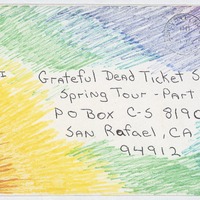 I
Grateful Dead Ticket S
Spring Tour - Part
PO BOX C-S 8190
San Rafael, CA.
94912